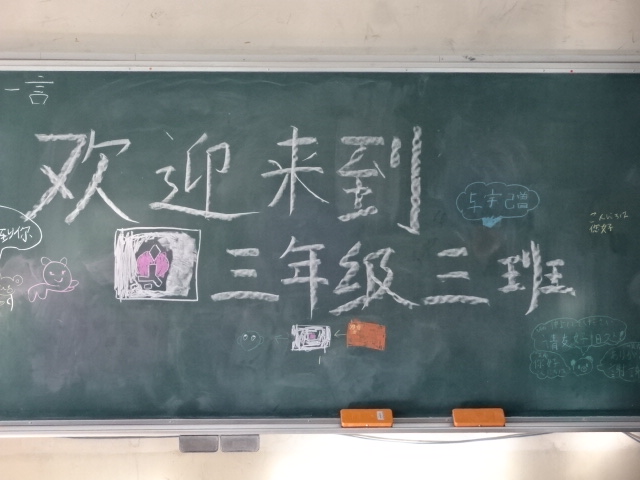 一言
欢迎来到
三年级三班
到你
こんにちは
您好